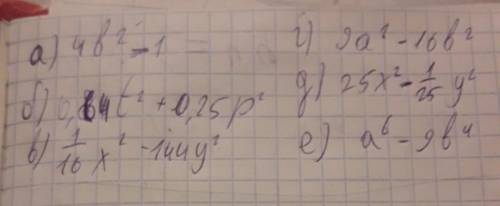 а) 4b² - 1 =
б) 0,64t² + 0,25p²
в) 1/16 x² - 144y²
г) 9a² - 16b²
д) 25x² - 1/25 y²
е) a⁶ - 9b⁴